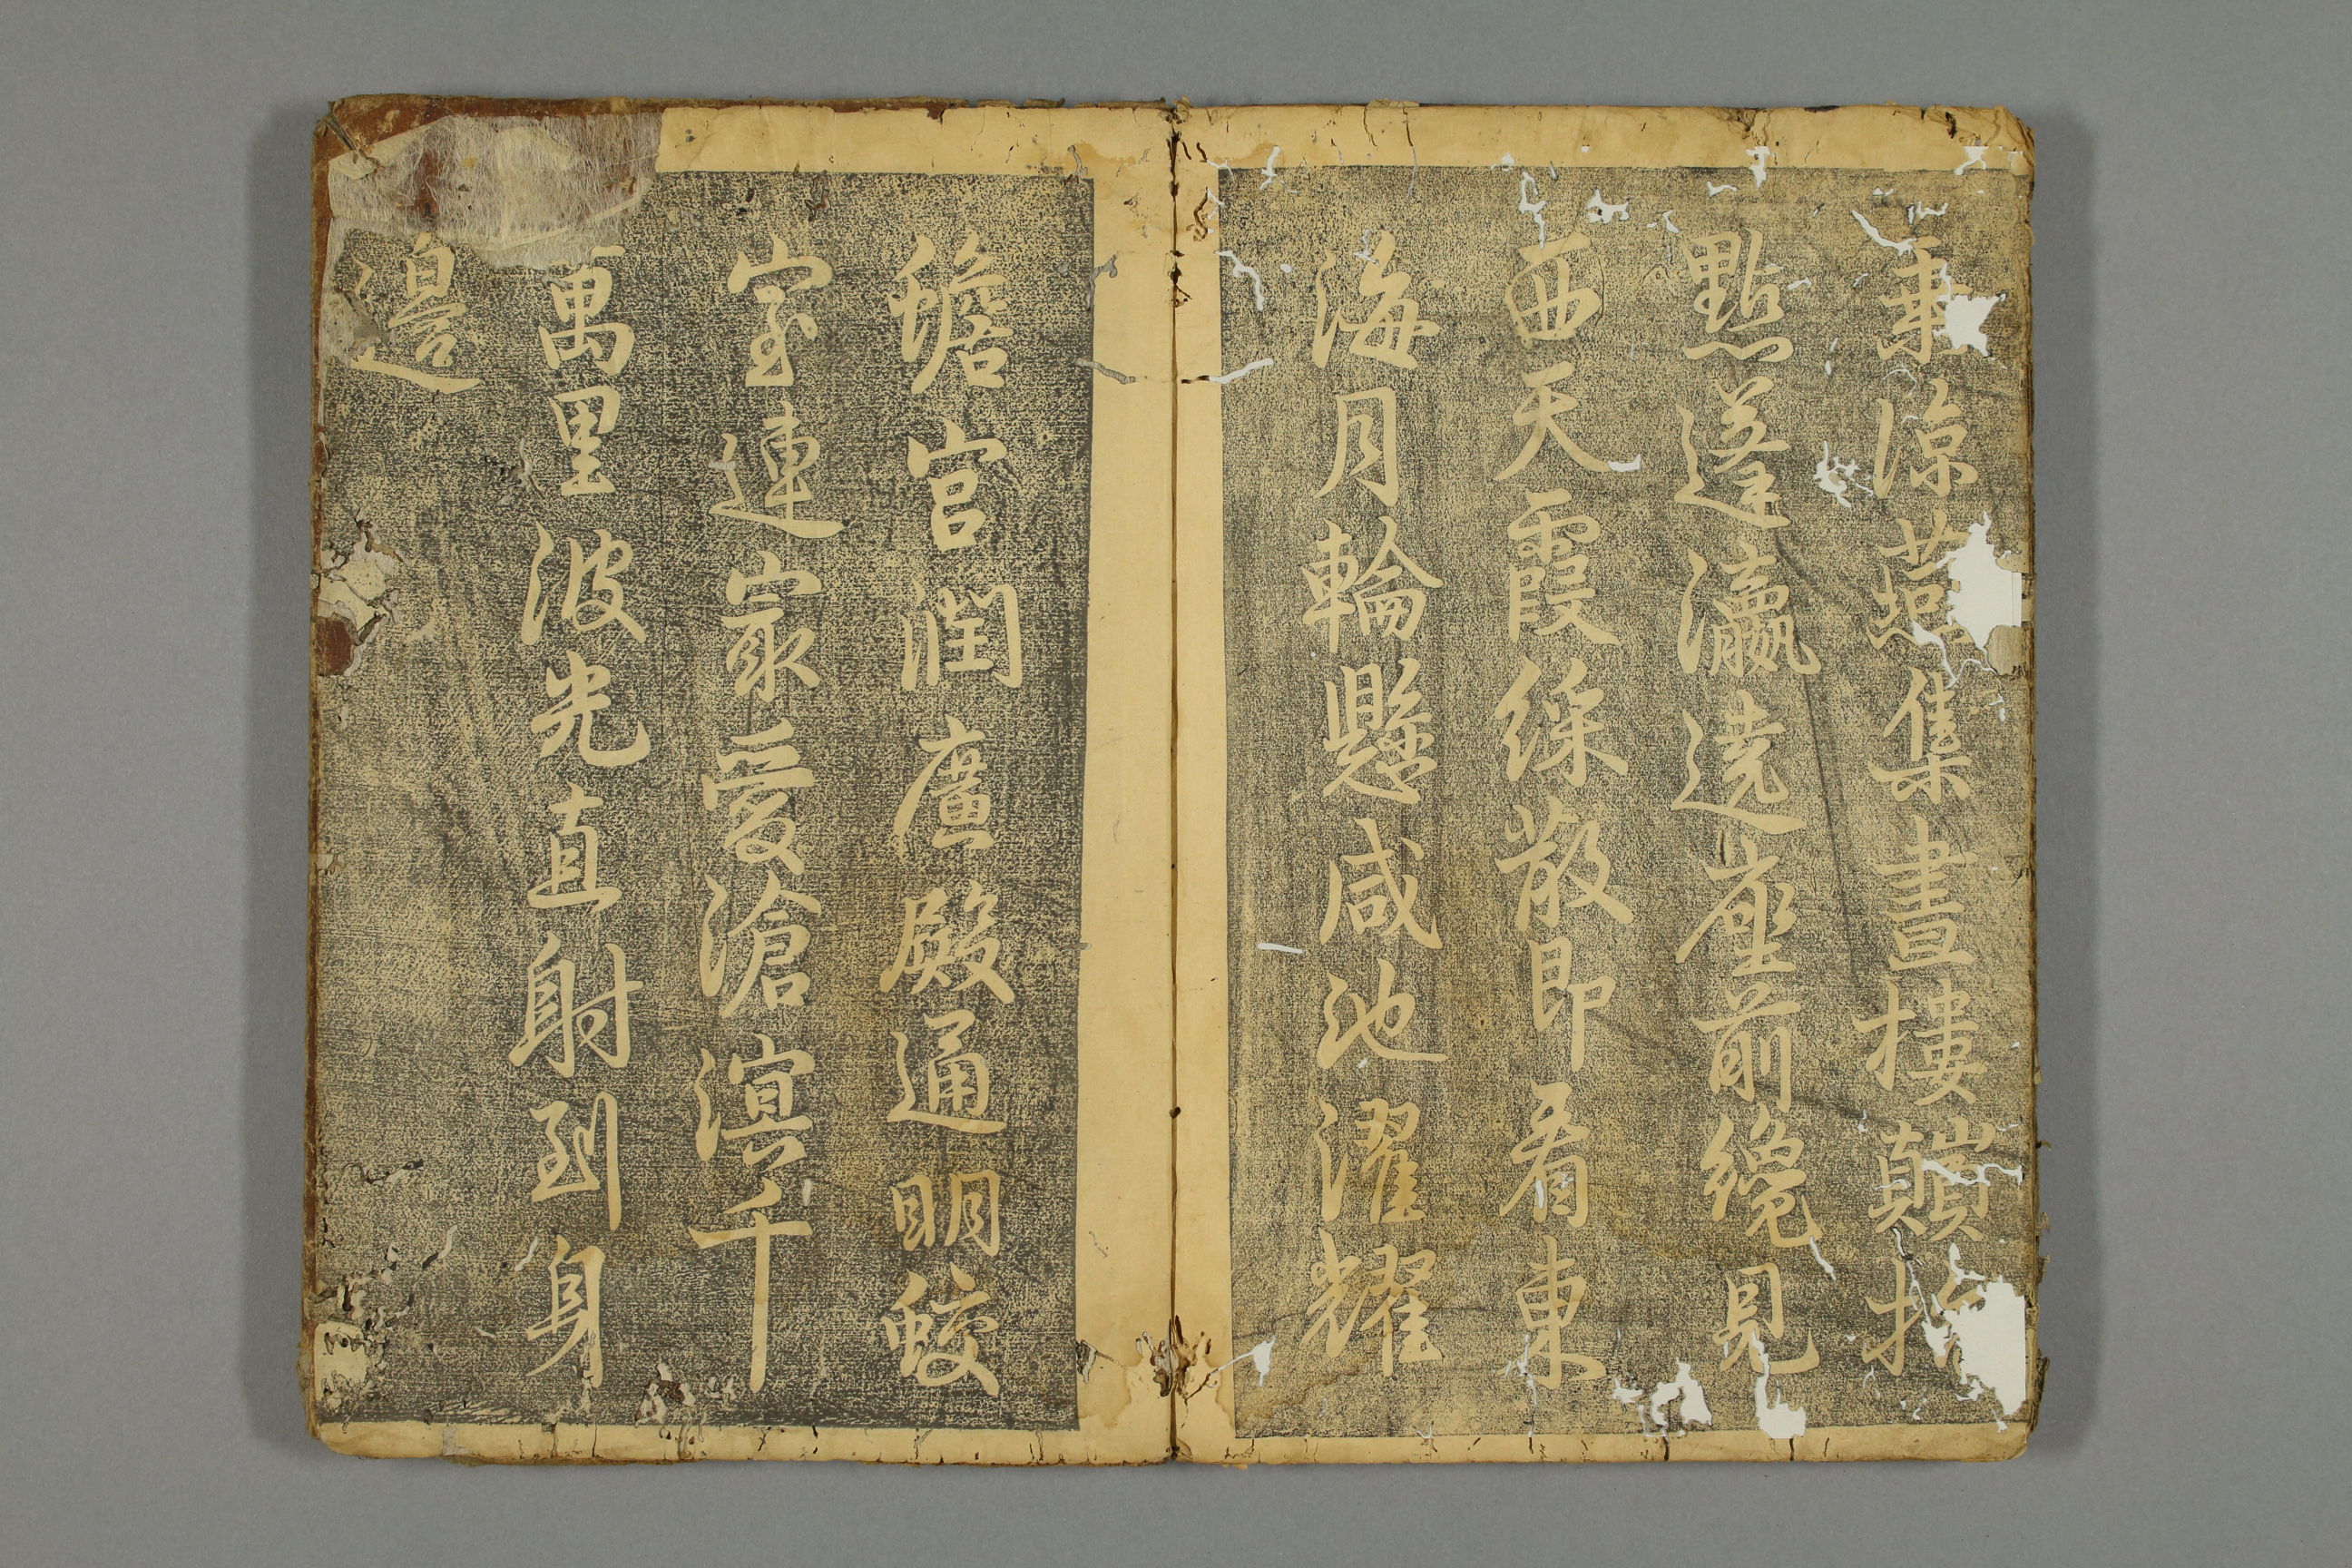 乘涼燕集畫樓巓指
點蓬瀛遶座前纔見
西天霞綵散即看東
海月輪懸咸池濯耀
蟾宮潤廣殿通明蛟
室連家愛滄溟千
萬里波光直射到身
邊